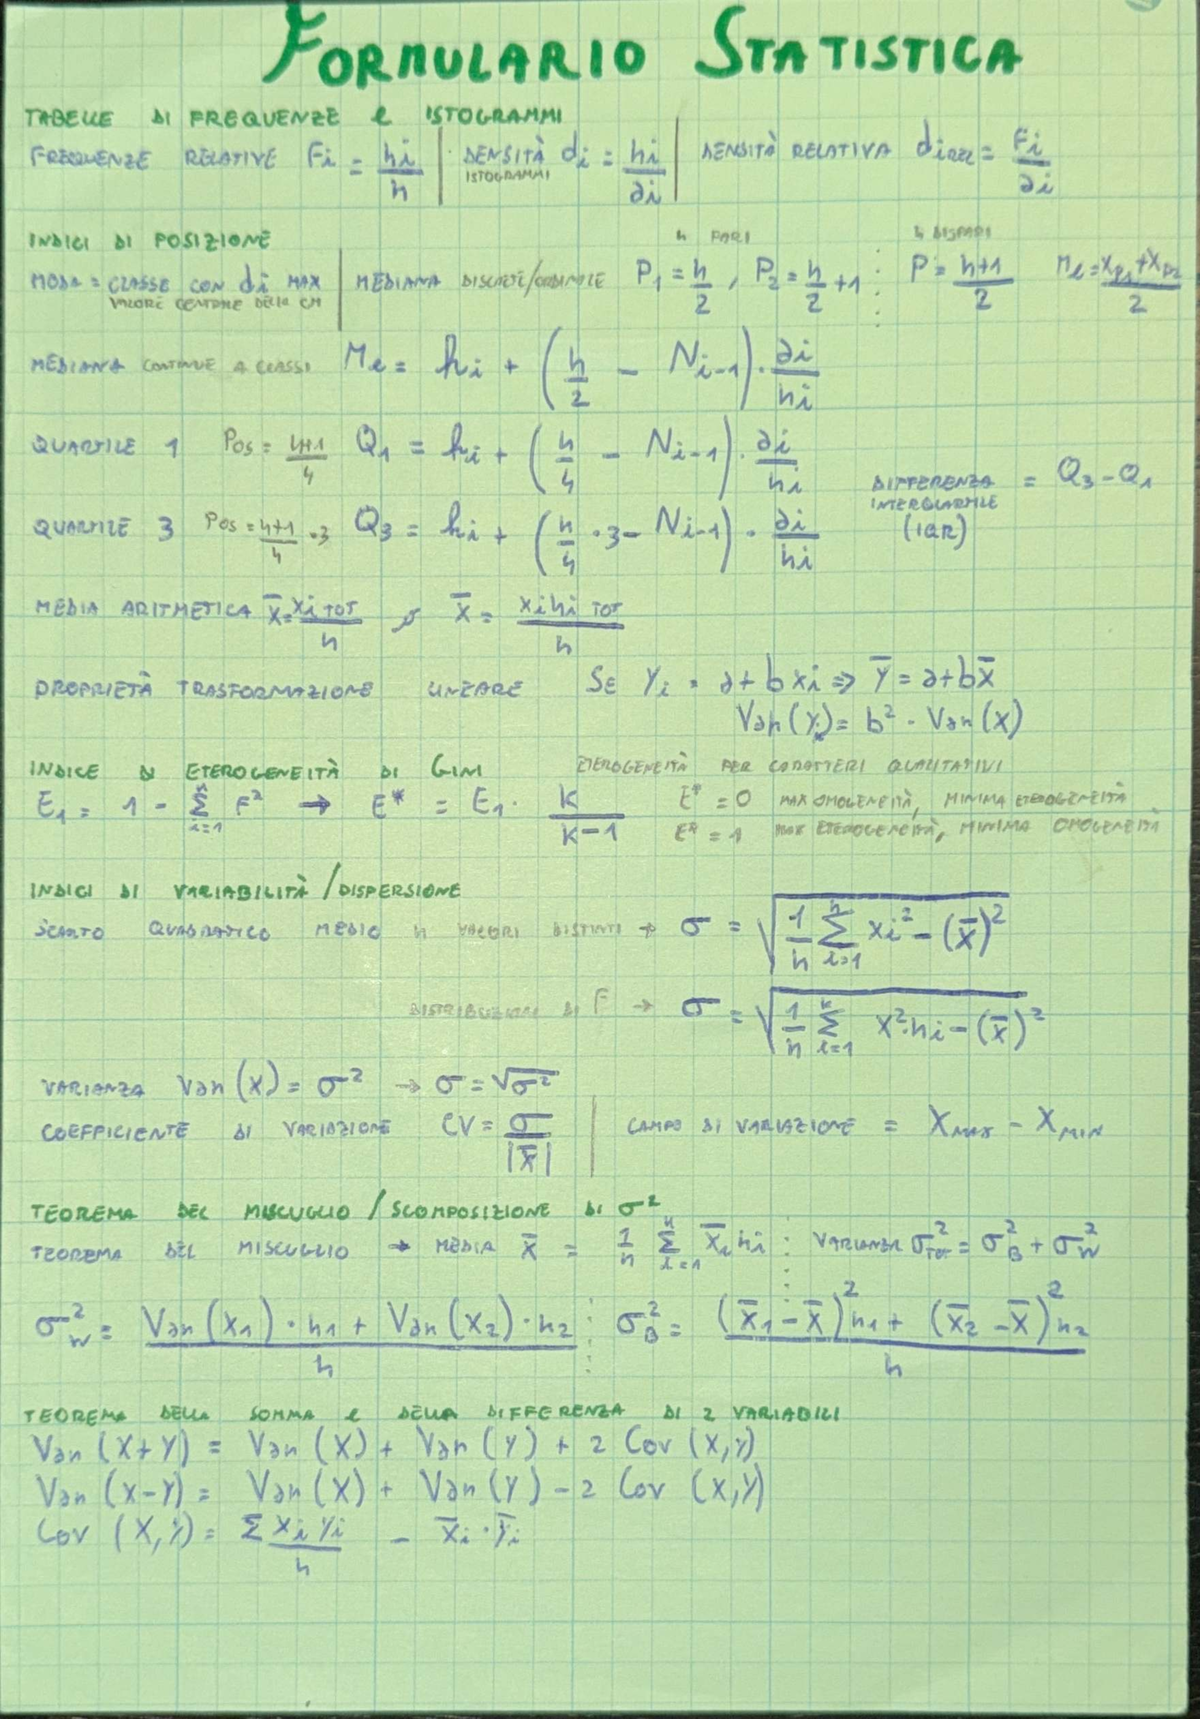 FORMULARIO STATISTICA
TABELLE DI FREQUENZE e ISTOGRAMMI
FREQUENZE RELATIVE Fi = ni/n | DENSITÀ ISTOGRAMMI di = ni/ai | DENSITÀ RELATIVA di REL = Fi/ai
INDICI DI POSIZIONE
n PARI n DISPARI
MODA = CLASSE CON di MAX | MEDIANA DISCRETE/ORDINALE P1 = n/2 , P2 = n/2 + 1 P = (n+1)/2 Me = (xP1 + xP2)/2
VALORE CENTRALE DELLA CM
MEDIANA CONTINUE A CLASSI Me = hi + (n/2 - Ni-1) · ai/ni
QUARTILE 1 Pos = (n+1)/4 Q1 = hi + (n/4 - Ni-1) · ai/ni
DIFFERENZA INTERQUARTILE (IQR) = Q3 - Q1
QUARTILE 3 Pos = (n+1)/4 · 3 Q3 = hi + (n/4 · 3 - Ni-1) · ai/ni
MEDIA ARITMETICA x̄ = xi TOT/n o x̄ = xini TOT/n
PROPRIETÀ TRASFORMAZIONE LINEARE SE Yi = a + bxi ⇒ ȳ = a + bx̄
Var(Y) = b² · Var(X)
INDICE DI ETEROGENEITÀ DI GINI ETEROGENEITÀ PER CARATTERI QUALITATIVI
E1 = 1 - Σ(i=1, K) F² → E* = E1 · K/(K-1)
E* = 0 MAX OMOGENEITÀ, MINIMA ETEROGENEITÀ
E* = 1 MAX ETEROGENEITÀ, MINIMA OMOGENEITÀ
INDICI DI VARIABILITÀ/DISPERSIONE
SCARTO QUADRATICO MEDIO n VALORI DISTINTI → σ = √(1/n Σ(i=1, n) xi² - (x̄)²)
DISTRIBUZIONI DI F → σ = √(1/n Σ(i=1, K) x²·ni - (x̄)²)
VARIANZA Var(X) = σ² → σ = √σ²
COEFFICIENTE DI VARIAZIONE CV = σ/|x̄| | CAMPO DI VARIAZIONE = XMAX - XMIN
TEOREMA DEL MISCUGLIO/SCOMPOSIZIONE DI σ²
TEOREMA DEL MISCUGLIO → MEDIA x̄ = 1/n Σ(i=1, K) x̄i ni VARIANZA σ²TOT = σ²B + σ²W
σ²W = (Var(X1) · n1 + Var(X2) · n2)/n σ²B = ((x̄1 - x̄)² n1 + (x̄2 - x̄)² n2)/n
TEOREMA DELLA SOMMA e DELLA DIFFERENZA DI 2 VARIABILI
Var(X+Y) = Var(X) + Var(Y) + 2 Cov(X,Y)
Var(X-Y) = Var(X) + Var(Y) - 2 Cov(X,Y)
Cov(X,Y) = Σ xi yi/n - x̄i · ȳi